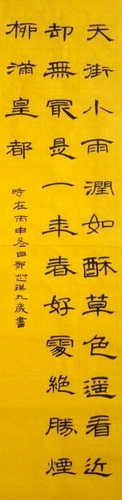 天街小雨潤如酥草色遥看近
却無最是一年春好處絕勝煙
柳滿皇都
時在丙申冬日鄭琪九歲書